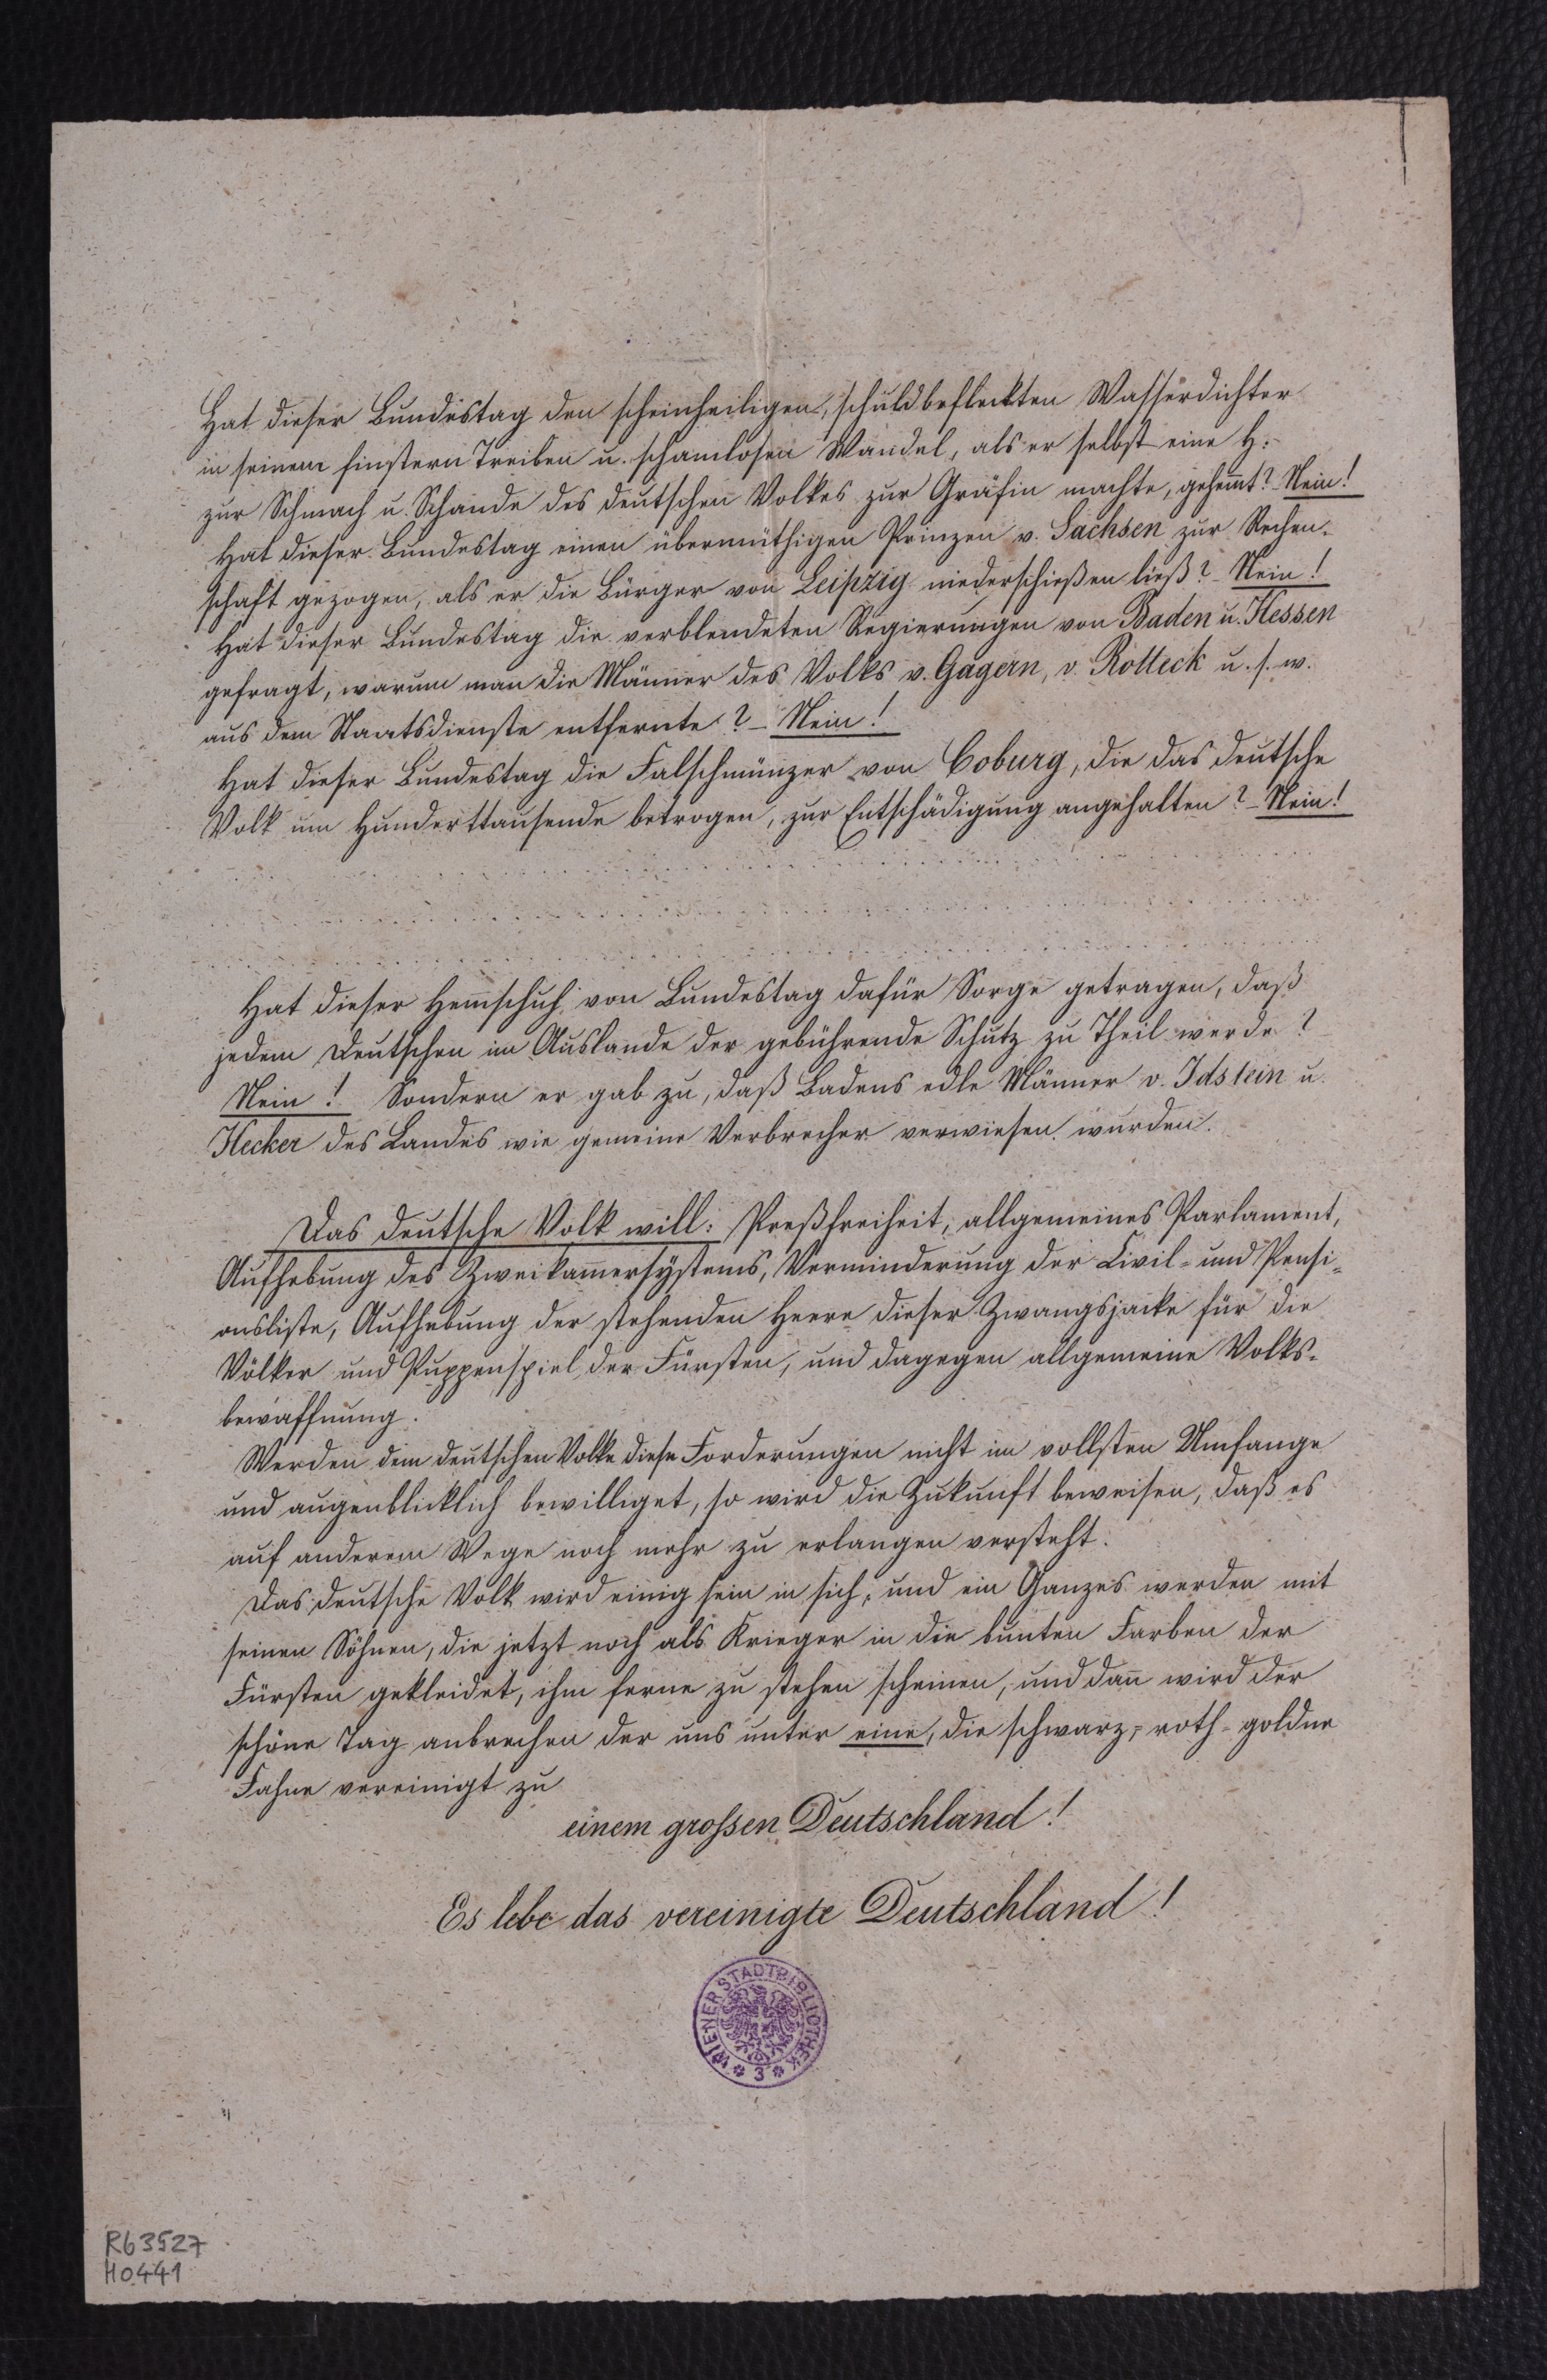 Hat dieser Bundestag den scheinheiligen, schuldbefleckten Wasserdichter
in seinem finstern Treiben u. schamlosen Wandel, als er selbst eine H.
zur Schmach u. Schande des deutschen Volkes zur Gräfin machte, gehem̄t? Nein!
Hat dieser Bundestag einen übermüthigen Prinzen v. Sachsen zur Rechen-
schaft gezogen, als er die Bürger von Leipzig niederschießen ließ? - Nein!
Hat dieser Bundestag die verblendeten Regierungen von Baden u. Hessen
gefragt, warum man die Männer des Volks v. Gagern, v. Rotteck u. s. w.
aus dem Staatsdienste entfernte? - Nein!
Hat dieser Bundestag die Falschmünzer von Coburg, die das deutsche
Volk um Hunderttausende betrogen, zur Entschädigung angehalten? - Nein!
Hat dieser Hem̄schuh von Bundestag dafür Sorge getragen, daß
jedem Deutschen im Auslande der gebührende Schutz zu Theil werde?
Nein! Sondern er gab zu, daß Badens edle Männer v. Idstein u.
Hecker des Landes wie gemeine Verbrecher verwiesen wurden.
Das deutsche Volk will: Preßfreiheit, allgemeines Parlament,
Aufhebung des Zweikam̄ersystems, Verminderung der Civil- und Pensi-
onsliste, Aufhebung der stehenden Heere dieser Zwangsjacke für die
Völker und Puppenspiel der Fürsten, und dagegen allgemeine Volks-
bewaffnung.
Werden dem deutschen Volke diese Forderungen nicht im vollsten Umfange
und augenblicklich bewilliget, so wird die Zukunft beweisen, daß es
auf anderem Wege noch mehr zu erlangen versteht.
Das deutsche Volk wird einig sein in sich, und ein Ganzes werden mit
seinen Söhnen, die jetzt noch als Krieger in die bunten Farben der
Fürsten gekleidet, ihm ferne zu stehen scheinen, und dan̄ wird der
schöne Tag anbrechen der uns unter eine, die schwarz-roth-goldne
Fahne vereinigt zu
einem großen Deutschland!
Es lebe das vereinigte Deutschland!
WIENER STADTBIBLIOTHEK
* 3 *
R63527
H0441